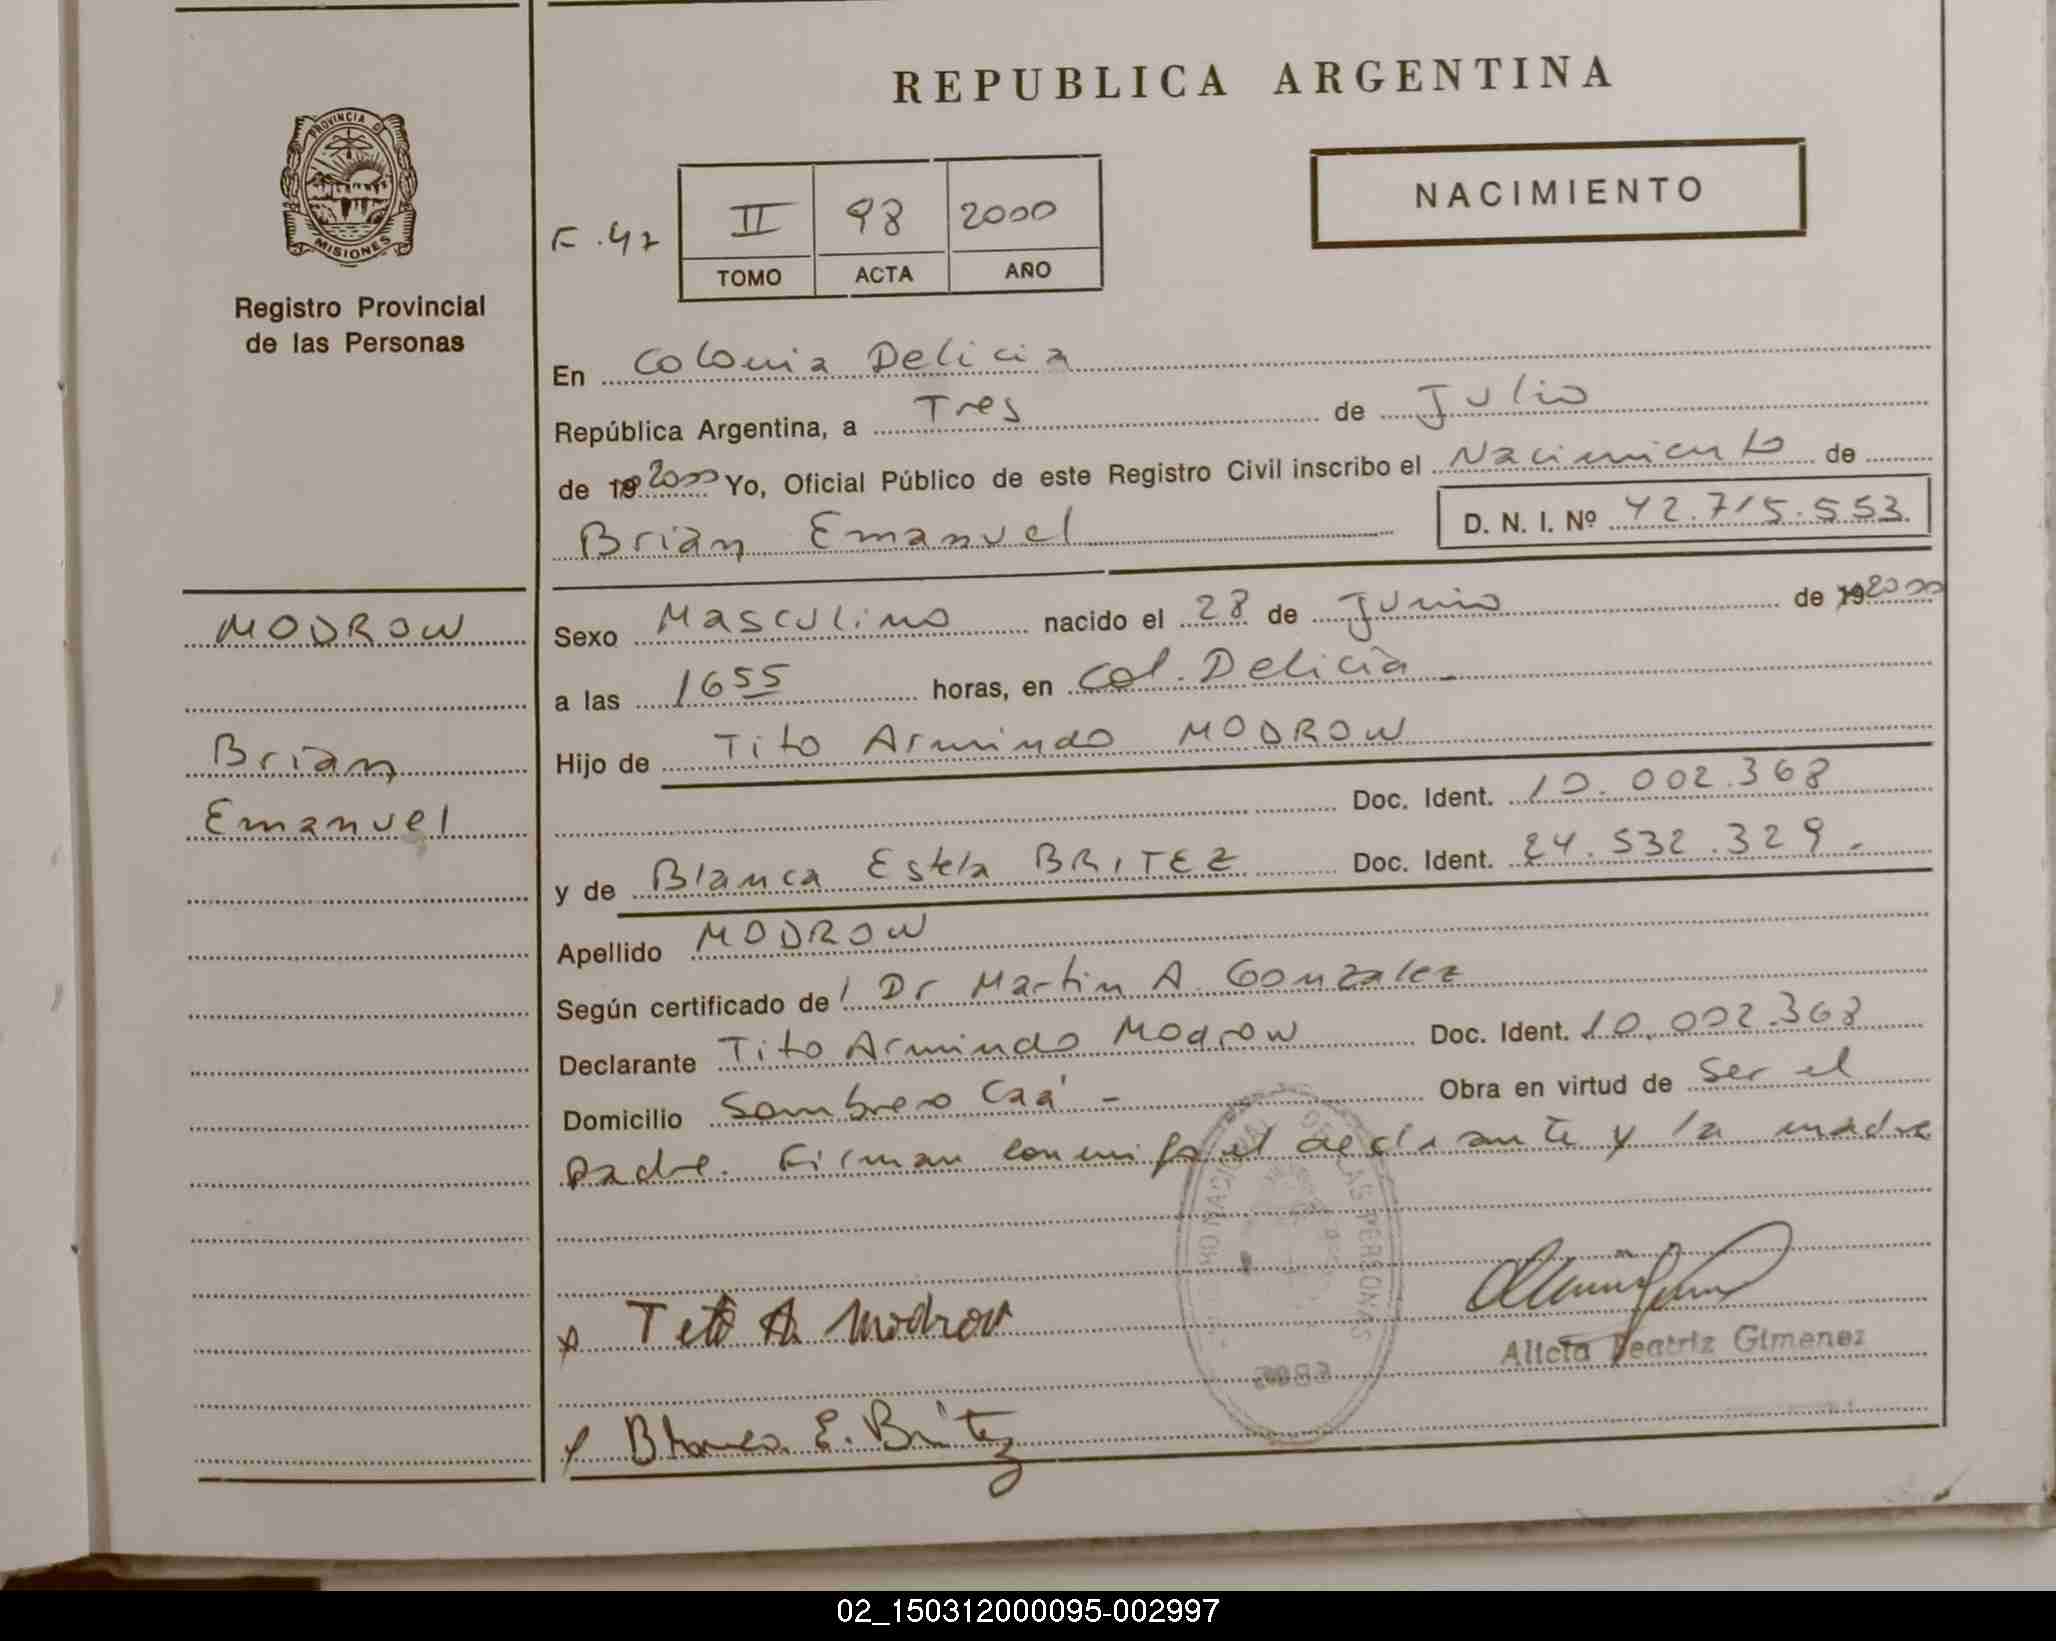 REPUBLICA ARGENTINA
PROVINCIA D
MISIONES
Registro Provincial
de las Personas
NACIMIENTO
F. 47
II 98 2000
TOMO ACTA AÑO
En Colonia Delicia
República Argentina, a Tres de Julio
de 19 2000 Yo, Oficial Público de este Registro Civil inscribo el Nacimiento de
Brian Emanuel D. N. I. Nº 42.715.553
MODROW
Brian
Emanuel
Sexo Masculino nacido el 28 de Junio de 19 2000
a las 1655 horas, en Col. Delicia
Hijo de Tito Armindo MODROW
Doc. Ident. 10.002.368
y de Blanca Estela BRITEZ Doc. Ident. 24.532.329.
Apellido MODROW
Según certificado de l Dr Martin A. Gonzalez
Declarante Tito Armindo Modrow Doc. Ident. 10.002.368
Domicilio Sombrero Caá - Obra en virtud de ser el
padre. Firman conmigo el declarante y la madre
DE LAS PERSONAS
x Tito A. Modrow
Alicia Beatriz Gimenez
x Blanca E. Britez
02_150312000095-002997